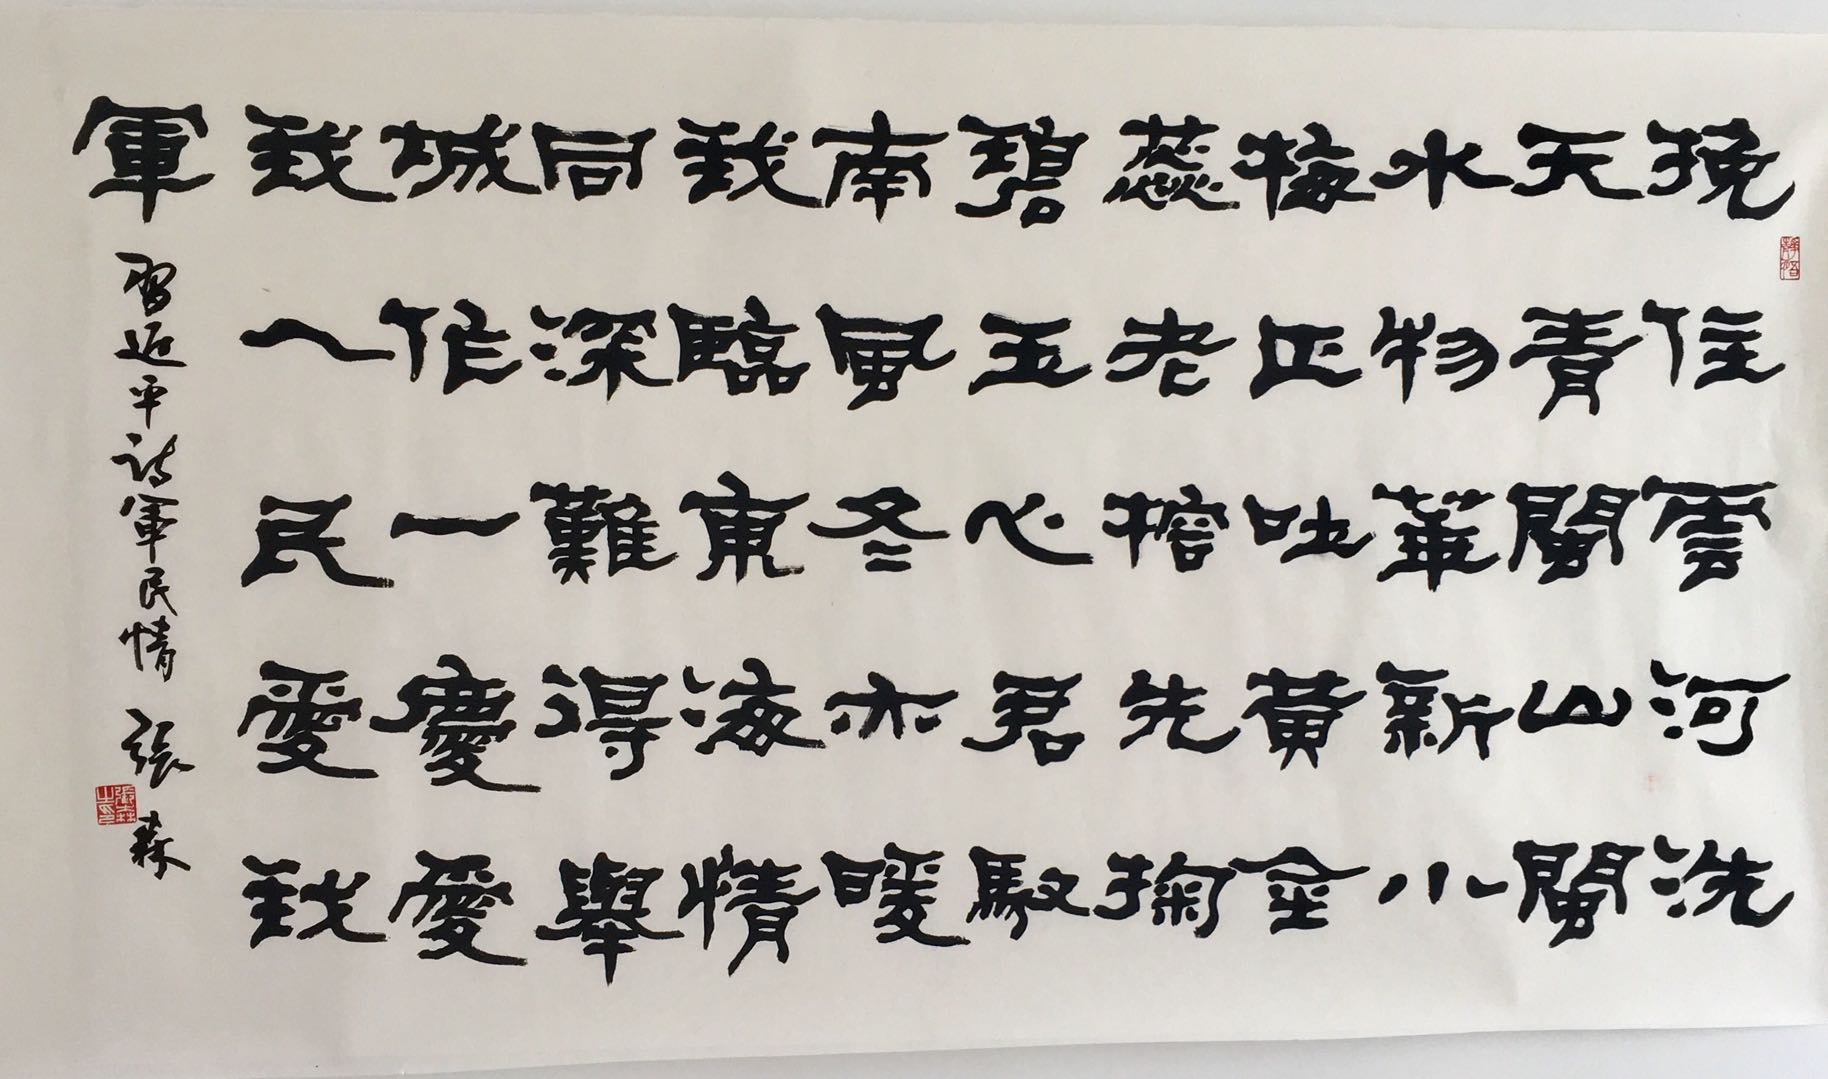 挽住雲河洗
天青閩山閩
水物華新小
梅正吐黃金
蕊老榕先掬
碧玉心君馭
南風冬亦暖
我臨東海情
同深難得舉
城作一慶愛
我人民愛我
軍
習近平詩軍民情 張森